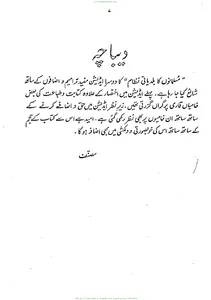 دیباچہ
"مسلمانوں کا بلدیاتی نظام" کا دوسرا ایڈیشن مفید ترامیم و اضافوں کے ساتھ
شائع کیا جا رہا ہے۔ پہلے ایڈیشن میں اختصار کے علاوہ کتابت و طباعت کی بعض
خامیاں قاری پر گراں گزرتی تھیں۔ زیر نظر ایڈیشن میں حک و اضافے کرنے کے
ساتھ ساتھ ان خامیوں پر بھی نظر رکھی گئی ہے۔ امید ہے اس سے کتاب کے حجم
کے ساتھ ساتھ اس کی خوبصورتی و دلکشی میں بھی اضافہ ہوگا۔
مصنف